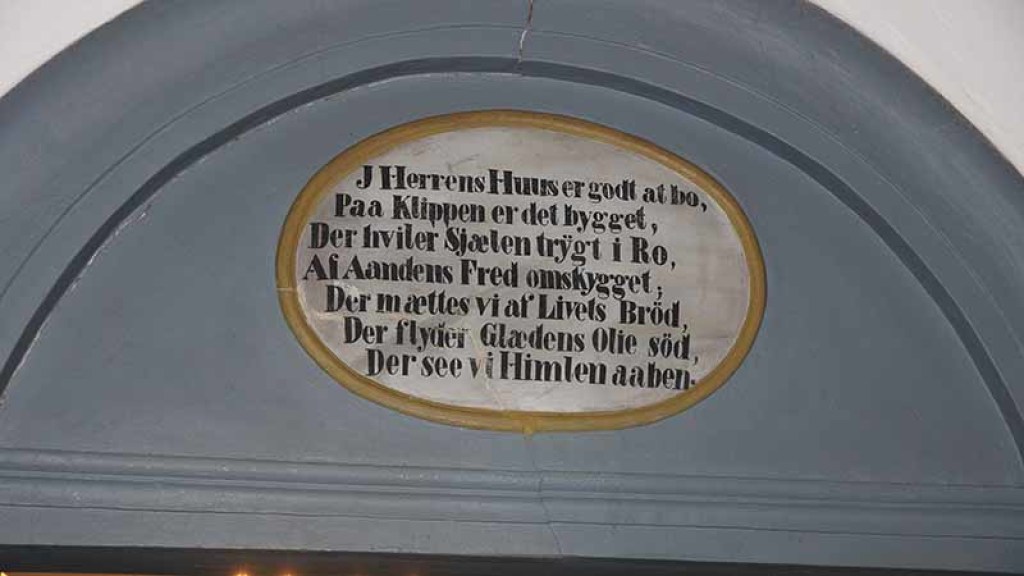 J Herrens Huus er godt at bo,
Paa Klippen er det bygget,
Der hviler Sjælen trÿgt i Ro,
Af Aandens Fred omskygget;
Der mættes vi af Livets Bröd,
Der flyder Glædens Olie söd,
Der see vi Himlen aaben.